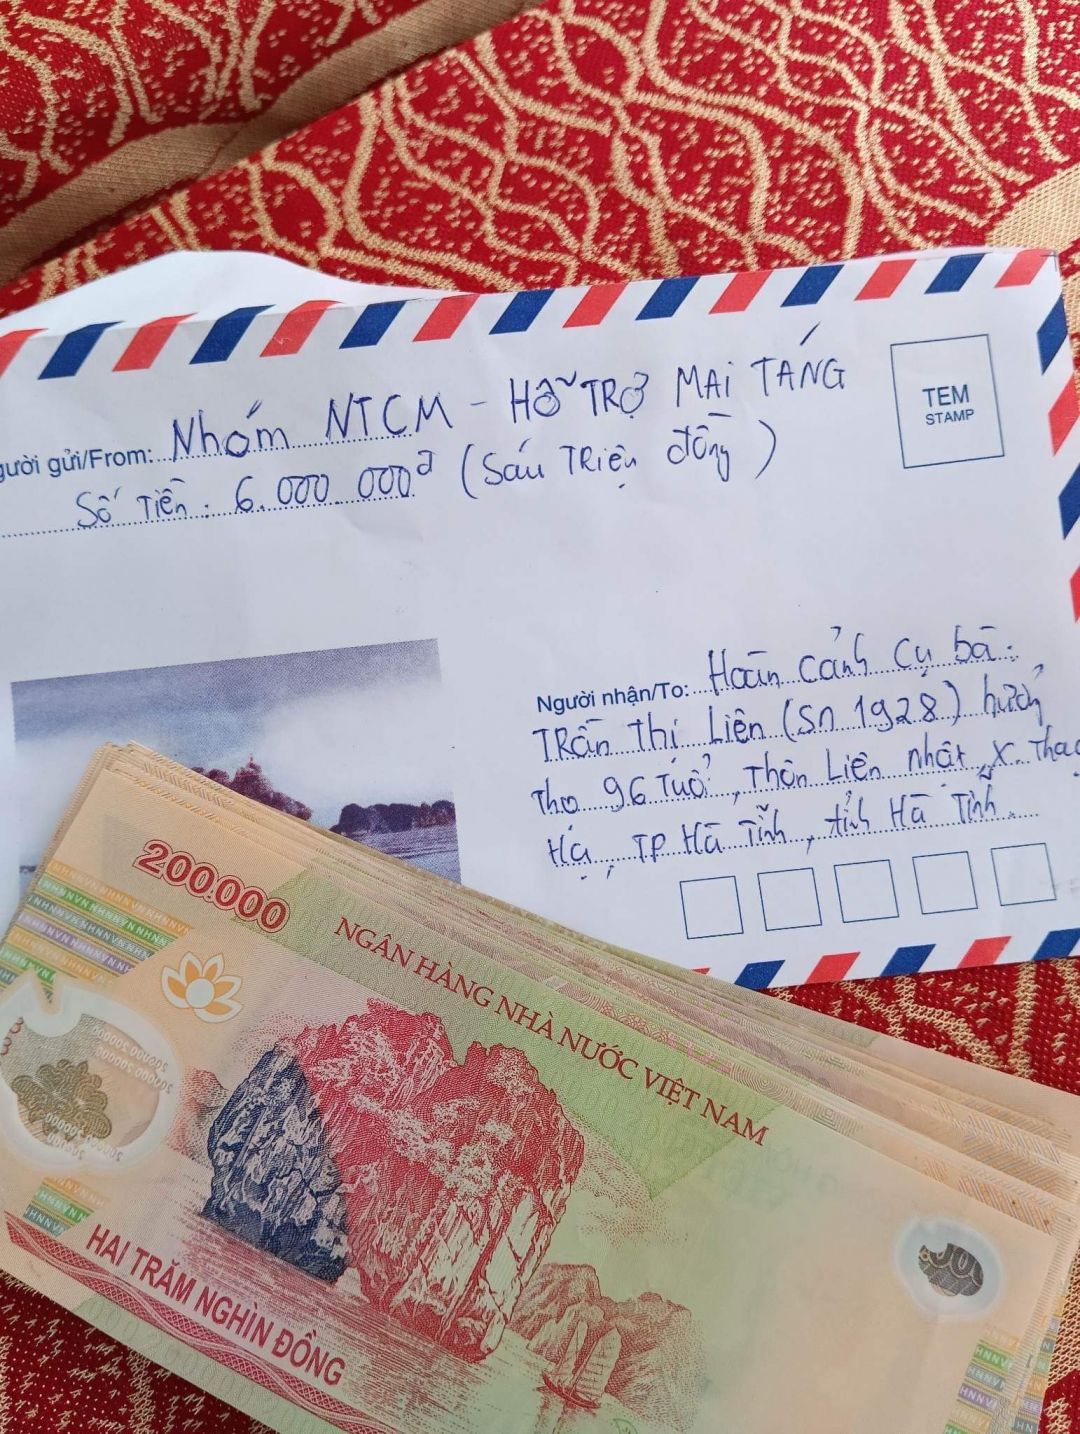 gười gửi/From: Nhóm NTCM - HỖ TRỢ MAI TÁNG
Số Tiền: 6.000.000đ (Sáu Triệu đồng)
TEM
STAMP
Người nhận/To: Hoàn cảnh cụ bà:
Trần Thị Liên (SN 1928) hưởng
Thọ 96 Tuổi, Thôn Liên Nhật, X. Thạc
Hạ, TP Hà Tĩnh, tỉnh Hà Tĩnh.
200.000
NGÂN HÀNG NHÀ NƯỚC VIỆT NAM
HAI TRĂM NGHÌN ĐỒNG